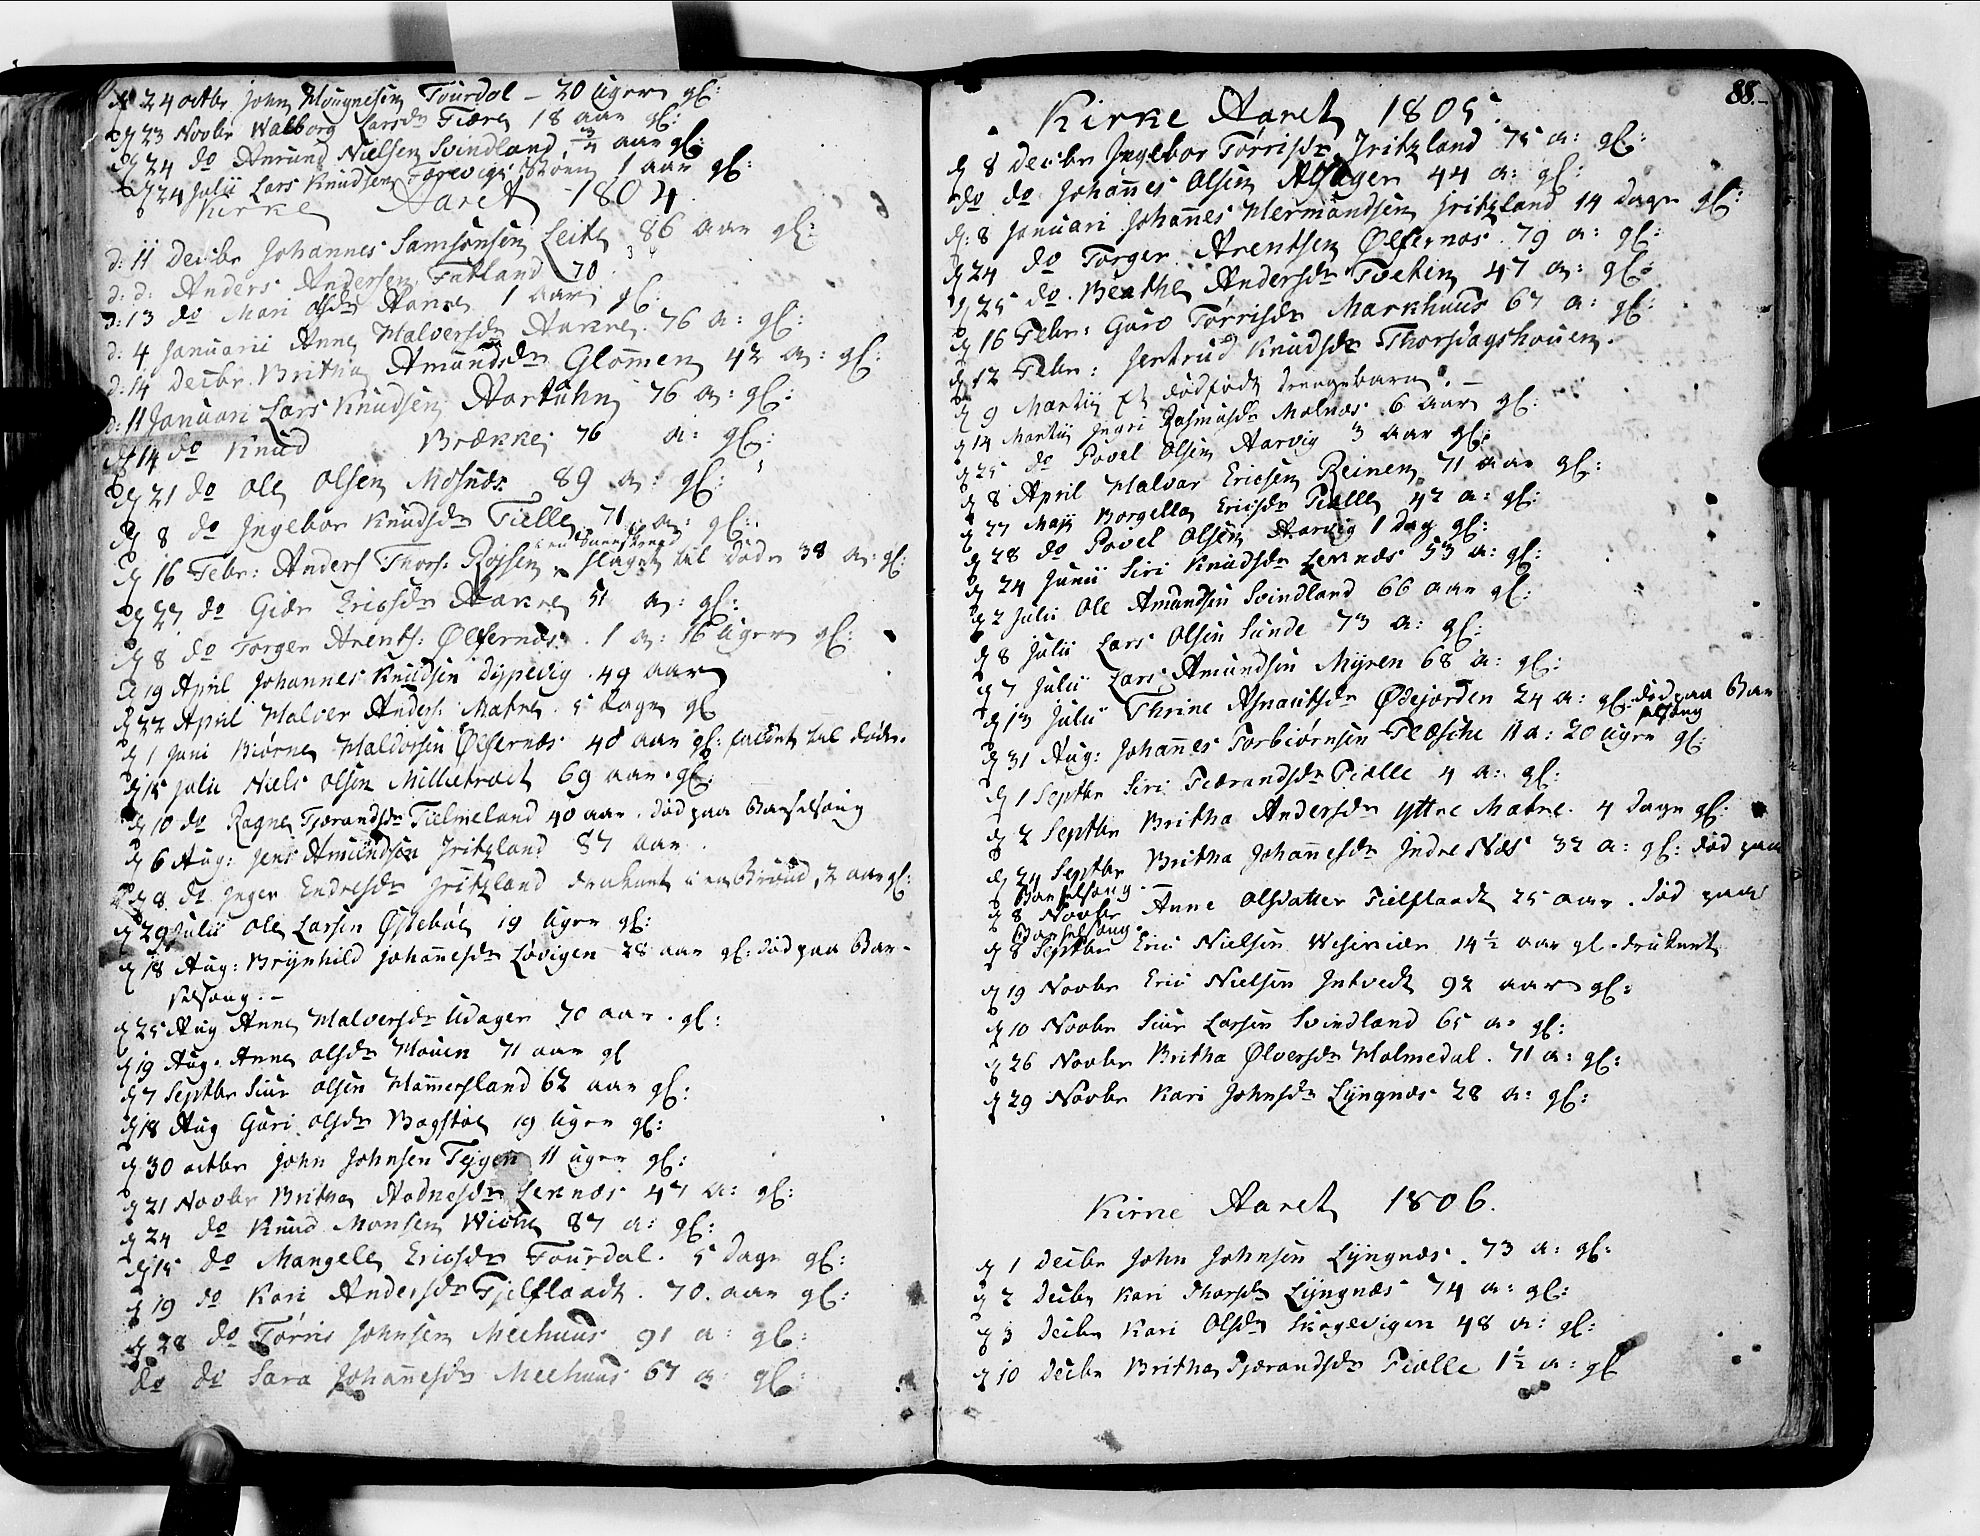 d 24 octbr John Mougnesen Fourdal - 20 Uger gl:
d 23 Novbr Walborg Larsdr Fiære 18 aar gl:
d 24 do Amund Nielsen Svindland 3/4 aar gl:
d 24 Julii Lars Knudsen Torevigs Støen 1 aar gl:
Kirke Aaret 1804
d: 11 Decbr Johannes Samsonsen Leite 86 aar gl:
d: d: Anders Andersen Fatland 70
d: 13 do Mari Olsdr Aakre 1 aar gl:
d: 4 Januarii Anne Halversdr Aakre 76 a: gl:
d: 14 Decbr Britha Amundsdr Glomen 42 a: gl:
d: 11 Januari Lars Knudsen Aartuhn 76 a: gl:
d 14 do Knud Brække 76 a: gl:
d 21 do Ole Olsen Mosnæs 89 a: gl:
d 8 do Ingebor Knudsdr Tielle 71 a: gl:
d 16 Febr: Anders Thors: Røssen slaget til døde 38 a: gl:
d 27 do Giær Ericsdr Aakre 51 a: gl:
d 8 do Torger Arents: Ølfernæs 1 a: 16 Uger gl:
d 19 April Johannes Knudsen Dypevig 49 aar
d 22 April Halver Anders: Matre 5 dage gl
d 1 Juni Biørne Haldorsen Ølfernæs 40 aar gl: faldet til døde.
d 15 Julii Niels Olsen Milletræet 69 aar gl:
d 10 do Ragne Tjerandsdr Tielmeland 40 aar. død paa Barselseng
d 6 Aug: Jens Amundsen Fritzland 87 aar.
d 8 dt. Inger Endresdr Fritzland druknet i en Brønd, 2 aar gl:
d 29 Julii Ole Larsen Østebøe 19 Uger gl:
d 18 Aug: Brynhild Johannesdr Løvigen 28 aar gl: død paa Bar-
selseng. -
d 25 Aug Anne Halversdr Udager 70 aar. gl:
d 19 Aug. Anne Olsdr Houen 71 aar gl
d 7 Septbr Siur Olsen Hammersland 62 aar gl:
d 18 Aug Guri Olsdr Bogstøe 19 Uger gl:
d 30 octbr John Johnsen Teigen 11 uger gl:
d 21 Novbr Britha Aadnesdr Leknæs 47 a: gl:
d 24 do Knud Monsen Wiche 87 a: gl:
d 15 do Mangelle Ericsdr Fourdal. 5 dage gl:
d 19 do Kari Andersdr Tjelflaadt. 70. aar gl:
d 28 do Tørris Johnsen Meehuus 91 a: gl:
do do Sara Johannesdr Meehuus 67 a: gl:
88.
Kirke Aaret 1805.
d 8 Decbr Ingebor Tørrisdr Fritzland 75 a: gl:
do do Johannes Olsen Alsager 44 a: gl:
d: 8 Januari Johannes Hermandsen Fritzland 14 dage gl:
d 24 do Torger Arentsen Ølfernæs 79 a: gl:
d 25 do. Beathe Andersdr Tveten 47 a: gl:
d 16 Febr: Guro Tørrisdr Markhuus 67 a: gl:
d 12 Febr: Jertrud Knudsdr Thorsdagshouen.
d 9 Martii Et dødfødt Drengebarn. -
d 14 Martii Ingri Rasmusdr Molnæs 6 aar gl:
d 25 do Povel Olsen Aarvig 3 aar gl:
d 8 April Halvor Ericsen Reinen 71 aar gl:
d 27 Maji Borgella Ericsdr Tielle 42 a: gl:
d 28 do Povel Olsen Aarvig 1 dag gl:
d 24 Junii Siri Knudsdr Leknæs 53 a: gl:
d 2 Julii Ole Amundsen Svindland 66 aar gl:
d 8 Julii Lars Olsen Sunde 73 a: gl:
d 7 Julii Lars Amundsen Myren 68 a: gl:
d 13 Julii Thrine Asgautsdr Ødejorden 24 a: gl: død paa Bar
selseng
d 31 Aug: Johannes Torbiørnsen Flæsche 11 a: 20 Uger gl:
d 1 Septbr Siri Tierandsdr Tielle 4 a: gl:
d 2 Septbr Britha Andersdr Yttre Matre. 4 dage gl:
d 24 Septbr Britha Johannesdr Indre Næs 32 a: gl: død paa
Barselseng.
d 8 Novbr Anne Olsdatter Tielflaadt 25 aar. død paa
Barselseng.
d 8 Septbr Eric Nielsen 14 1/2 aar gl. druknet
d 19 Novbr Eric Nielsen Indvedt 92 aar gl:
d 10 Novbr Siur Larsen Svindland 65 a: gl:
d 26 Novbr Britha Ølversdr Holmedal. 71 a: gl:
d 29 Novbr Kari Johnsdr Lyngnæs 28 a: gl:
Kirke Aaret 1806.
d 1 Decbr John Johnsen Lyngnæs. 73 a: gl:
d 2 Decbr Kari Thorsdr Lyngnæs 74 a: gl:
d 3 Decbr Kari Olsdr Skogevigen 48 a: gl:
d 10 Decbr Britha Tjerandsdr Tielle 1 1/2 a: gl